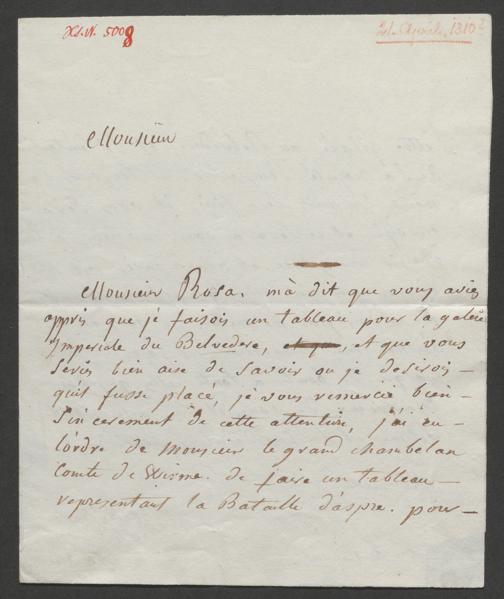 H.I.N. 5008
21. Aprile, 1810
Monsieur
Monsieur Rosa. mà dit que vous aviez
appris que je faisois un tableau pour la galerie
Imperiale du Belvedere, et que, et que vous
Seriés bien aise de Savoir ou je desirois
quil fusse placé, je vous remercie bien
Sincerement de cette attention, j'ai eu
l'ordre de Monsieur le grand chambelan
Comte de de faire un tableau
representant la Bataille d'aspre. pour